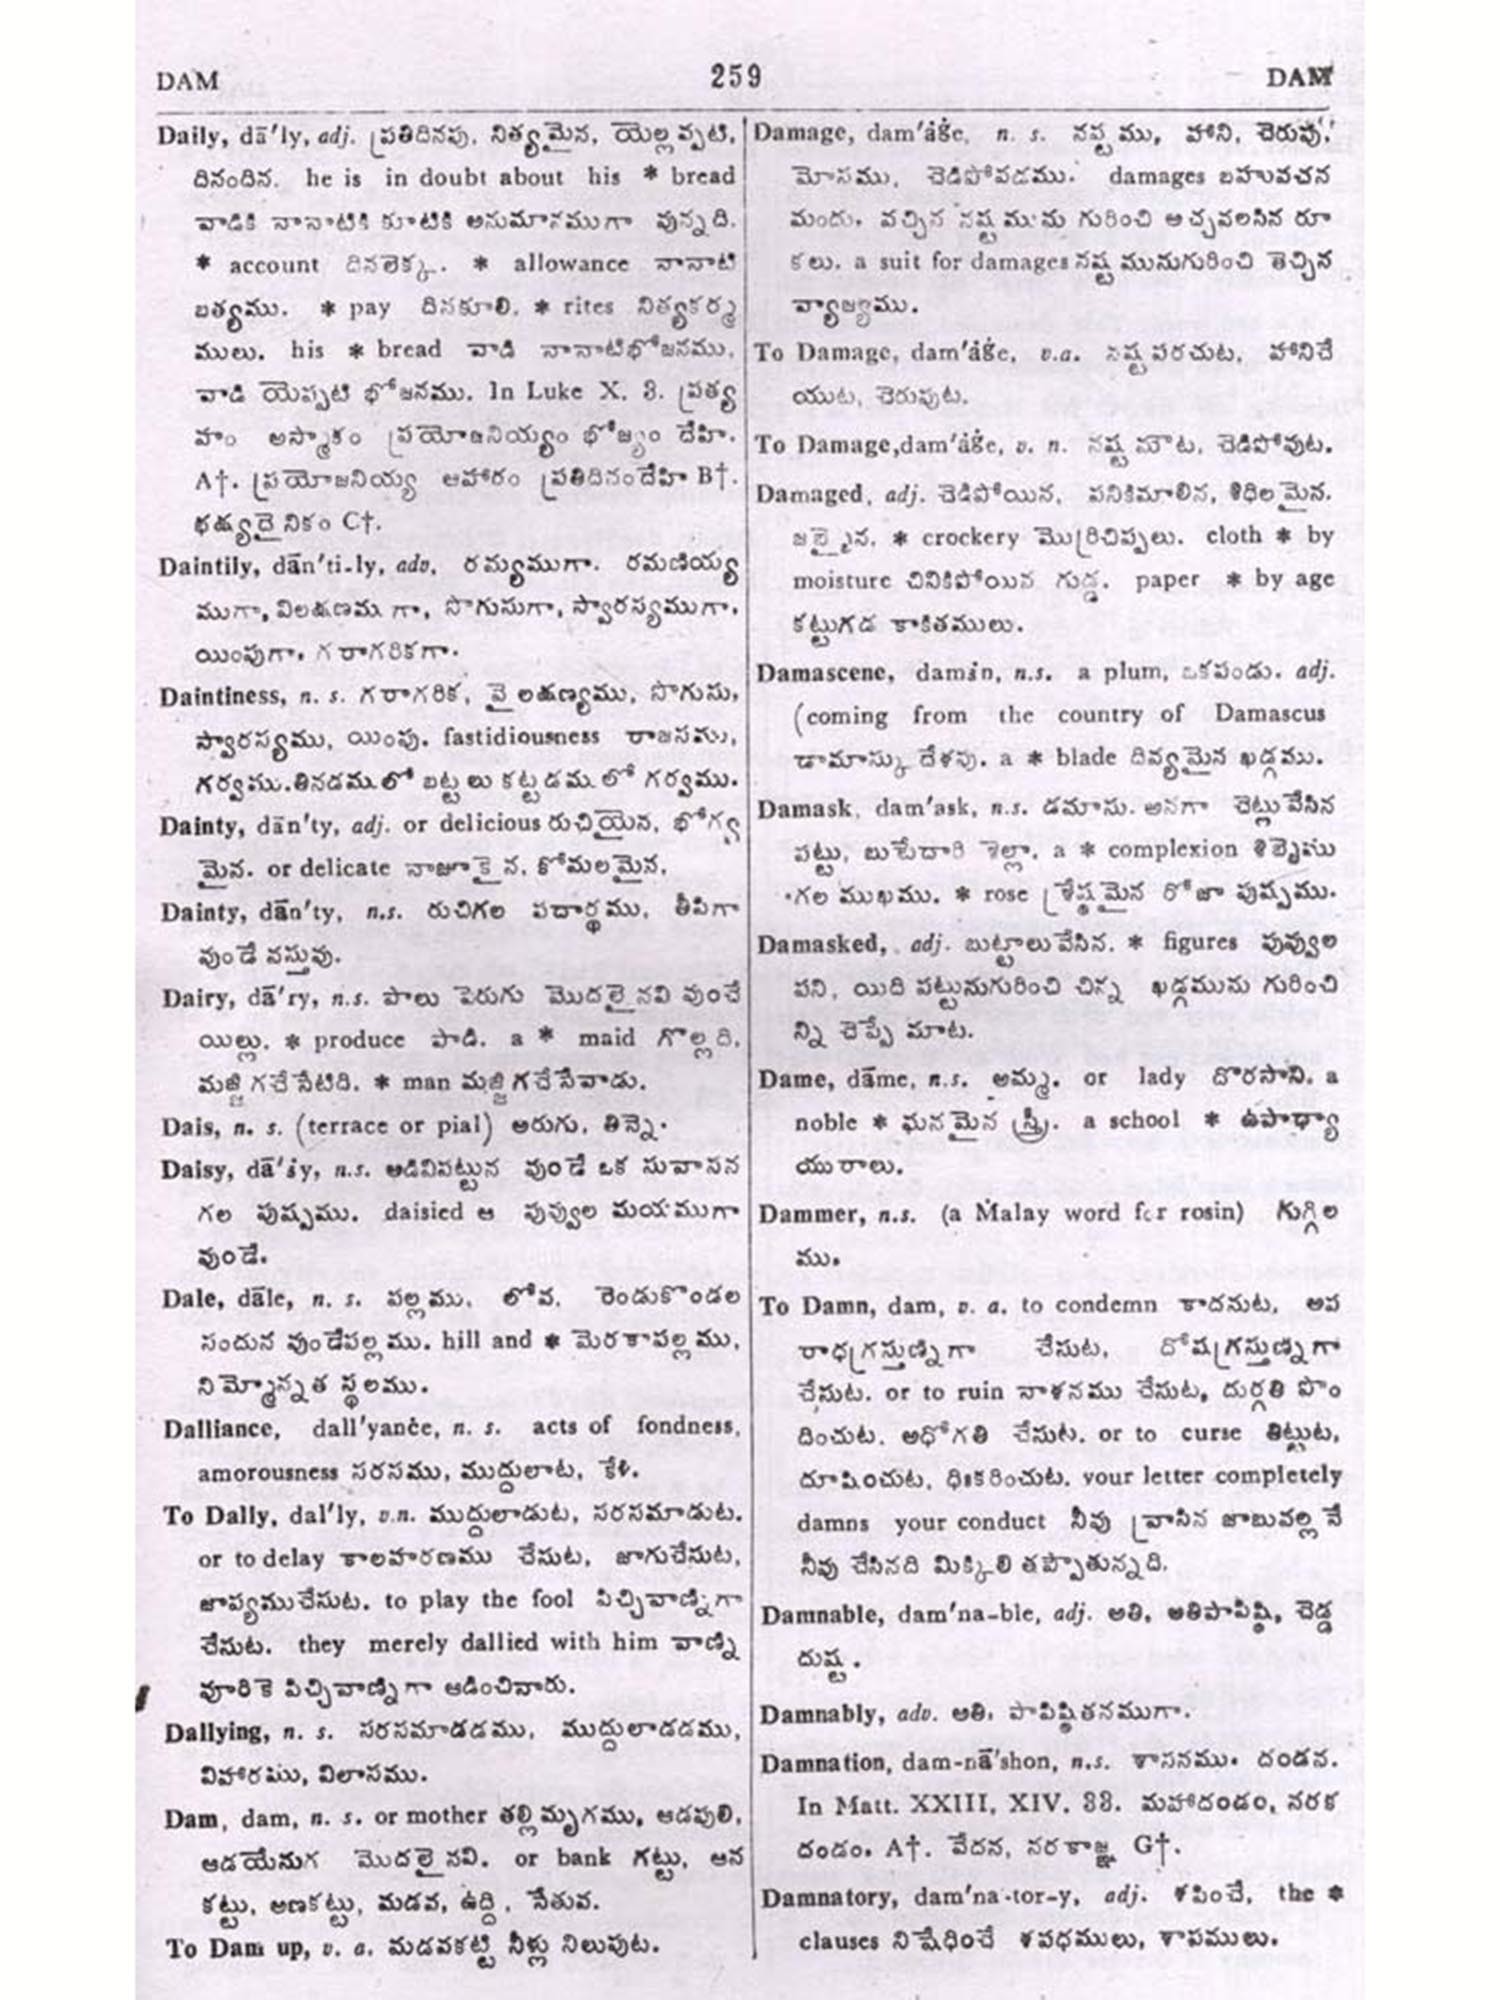 DAM 259 DAM
Daily, dā'ly, adj. ప్రతిదినపు, నిత్యమైన, యెల్లప్పటి,
దినందిన. he is in doubt about his * bread
వాడికి నానాటికి కూటికి అనుమానముగా వున్నది.
* account దినలెక్క. * allowance నానాటి
బత్యము. * pay దినకూలి. * rites నిత్యకర్మ
ములు. his * bread వాడి నానాటిభోజనము,
వాడి యెప్పటి భోజనము. In Luke X. 3. ప్రత్య
హం అస్మాకం ప్రయోజనియ్యం భోజ్యం దేహి.
A†. ప్రయోజనియ్య ఆహారం ప్రతిదినందేహి B†.
భక్ష్యదైనికం C†.
Daintily, dān'ti-ly, adv. రమ్యముగా. రమణియ్య
ముగా, విలక్షణము గా, సొగుసుగా, స్వారస్యముగా,
యింపుగా, గరాగరికగా.
Daintiness, n. s. గరాగరిక, వైలక్షణ్యము, సొగుసు,
స్వారస్యము, యింపు. fastidiousness రాజసము,
గర్వము.తినడములో బట్టలు కట్టడములో గర్వము.
Dainty, dān'ty, adj. or delicious రుచియైన, భోగ్య
మైన. or delicate నాజూకైన, కోమలమైన,
Dainty, dān'ty, n.s. రుచిగల పదార్థము, తీపిగా
వుండే వస్తువు.
Dairy, dā'ry, n.s. పాలు పెరుగు మొదలైనవి వుంచే
యిల్లు. * produce పాడి. a * maid గొల్లది,
మజ్జిగచేసేటిది. * man మజ్జిగచేసేవాడు.
Dais, n. s. (terrace or pial) అరుగు, తిన్నె.
Daisy, dā'ṡy, n.s. అడివిపట్టున వుండే ఒక సువాసన
గల పుష్పము. daisied ఆ పువ్వుల మయముగా
వుండే.
Dale, dāle, n. s. పల్లము, లోవ, రెండుకొండల
సందున వుండేపల్లము. hill and * మెరకాపల్లము,
నిమ్నోన్నత స్థలము.
Dalliance, dall'yanċe, n. s. acts of fondness,
amorousness సరసము, ముద్దులాట, కేళి.
To Dally, dal'ly, v.n. ముద్దులాడుట, సరసమాడుట.
or to delay కాలహరణము చేసుట, జాగుచేసుట,
జాప్యముచేసుట. to play the fool పిచ్చివాణ్నిగా
చేసుట. they merely dallied with him వాణ్ని
వూరికె పిచ్చివాణ్నిగా ఆడించినారు.
Dallying, n. s. సరసమాడడము, ముద్దులాడడము,
విహారము, విలాసము.
Dam, dam, n. s. or mother తల్లిమృగము, ఆడపులి,
ఆడయేనుగ మొదలైనవి. or bank గట్టు, ఆన
కట్టు, అణకట్టు, మడవ, ఉద్ది, సేతువ.
To Dam up, v. a. మడవకట్టి నీళ్లు నిలుపుట.
Damage, dam'ȧġe, n. s. నష్టము, హాని, చెరుపు,
మోసము, చెడిపోవడము. damages బహువచన
మందు, వచ్చిన నష్టమును గురించి అచ్చవలసిన రూ
కలు. a suit for damages నష్టమునుగురించి తెచ్చిన
వ్యాజ్యము.
To Damage, dam'ȧġe, v.a. నష్టపరచుట, హానిచే
యుట, చెరుపుట.
To Damage,dam'ȧġe, v. n. నష్టమౌట, చెడిపోవుట.
Damaged, adj. చెడిపోయిన, పనికిమాలిన, శిథిలమైన.
జబ్బైన. * crockery మొర్రిచిప్పలు. cloth * by
moisture చినికిపోయిన గుడ్డ. paper * by age
కట్టుగడ కాకితములు.
Damascene, damṡn, n.s. a plum, ఒకపండు. adj.
(coming from the country of Damascus
డామాస్కు దేశపు. a * blade దివ్యమైన ఖడ్గము.
Damask, dam'ask, n.s. డమాసు. అనగా చెట్లువేసిన
పట్టు, బుటేదారి శెల్లా. a * complexion
గల ముఖము. * rose శ్రేష్ఠమైన రోజా పుష్పము.
Damasked, adj. బుట్టాలువేసిన. * figures పువ్వుల
పని, యిది పట్టునుగురించి చిన్న ఖడ్గమును గురించి
న్ని చెప్పే మాట.
Dame, dāme, n.s. అమ్మ. or lady దొరసాని. a
noble * ఘనమైన స్త్రీ. a school * ఉపాధ్యా
యురాలు.
Dammer, n.s. (a Malay word for rosin) గుగ్గిల
ము.
To Damn, dam, v. a. to condemn కాదనుట, అప
రాధగ్రస్తుణ్నిగా చేసుట, దోషగ్రస్తుణ్నిగా
చేసుట. or to ruin నాశనము చేసుట, దుర్గతి పొం
దించుట. అధోగతి చేసుట. or to curse తిట్టుట,
దూషించుట, ధిఃకరించుట. your letter completely
damns your conduct నీవు వ్రాసిన జాబువల్లనే
నీవు చేసినది మిక్కిలి తప్పౌతున్నది.
Damnable, dam'na-ble, adj. అతి, అతిపాపిష్ఠి, చెడ్డ
దుష్ట.
Damnably, adv. అతి, పాపిష్ఠితనముగా.
Damnation, dam-nā'shon, n.s. శాసనము. దండన.
In Matt. XXIII, XIV. 33. మహాదండం, నరక
దండం. A†. వేదన, నరకాజ్ఞ G†.
Damnatory, dam'na-tor-y, adj. శపించే, the *
clauses నిషేధించే శపధములు, శాపములు.